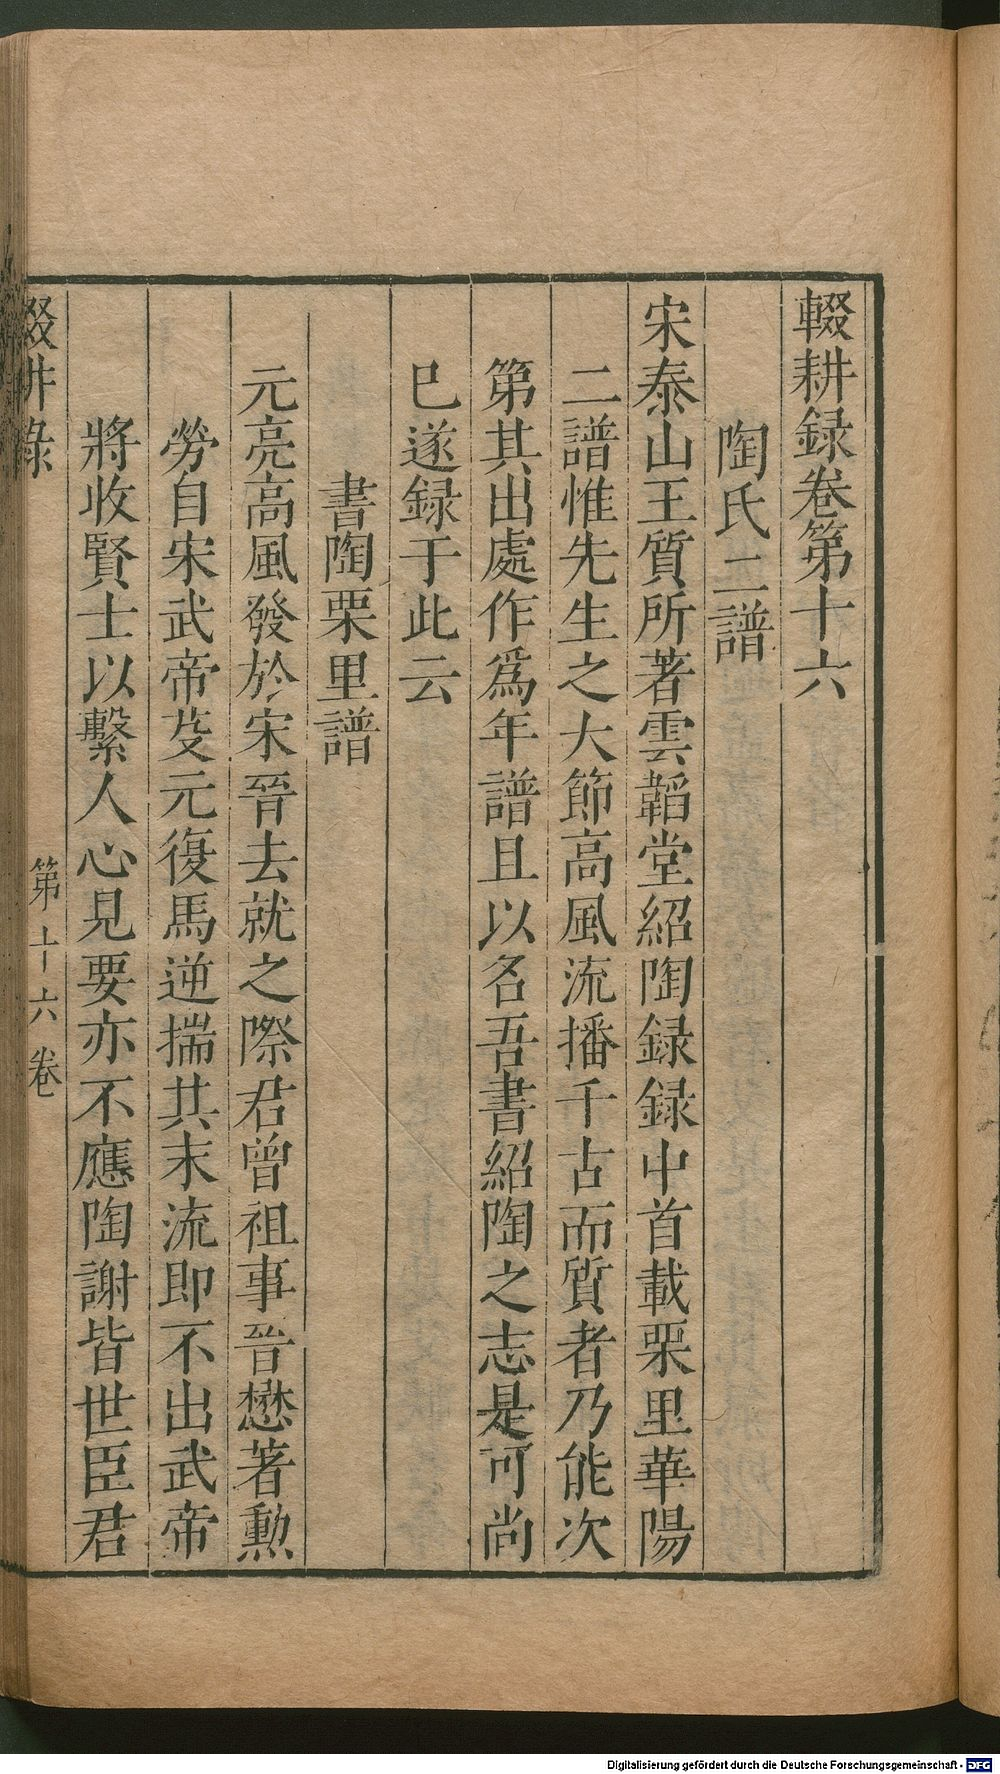 輟耕録卷第十六
陶氏二譜
宋泰山王質所著雲韜堂紹陶録録中首載栗里華陽
二譜惟先生之大節高風流播千古而質者乃能次
第其出處作爲年譜且以名吾書紹陶之志是可尚
巳遂録于此云
書陶栗里譜
元亮高風發於宋晉去就之際君曾祖事晉懋著勲
勞自宋武帝芟元復馬逆揣其末流即不出武帝
將收賢士以繫人心見要亦不應陶謝皆世臣君
輟耕錄
第十六卷
Digitalisierung gefördert durch die Deutsche Forschungsgemeinschaft - DFG